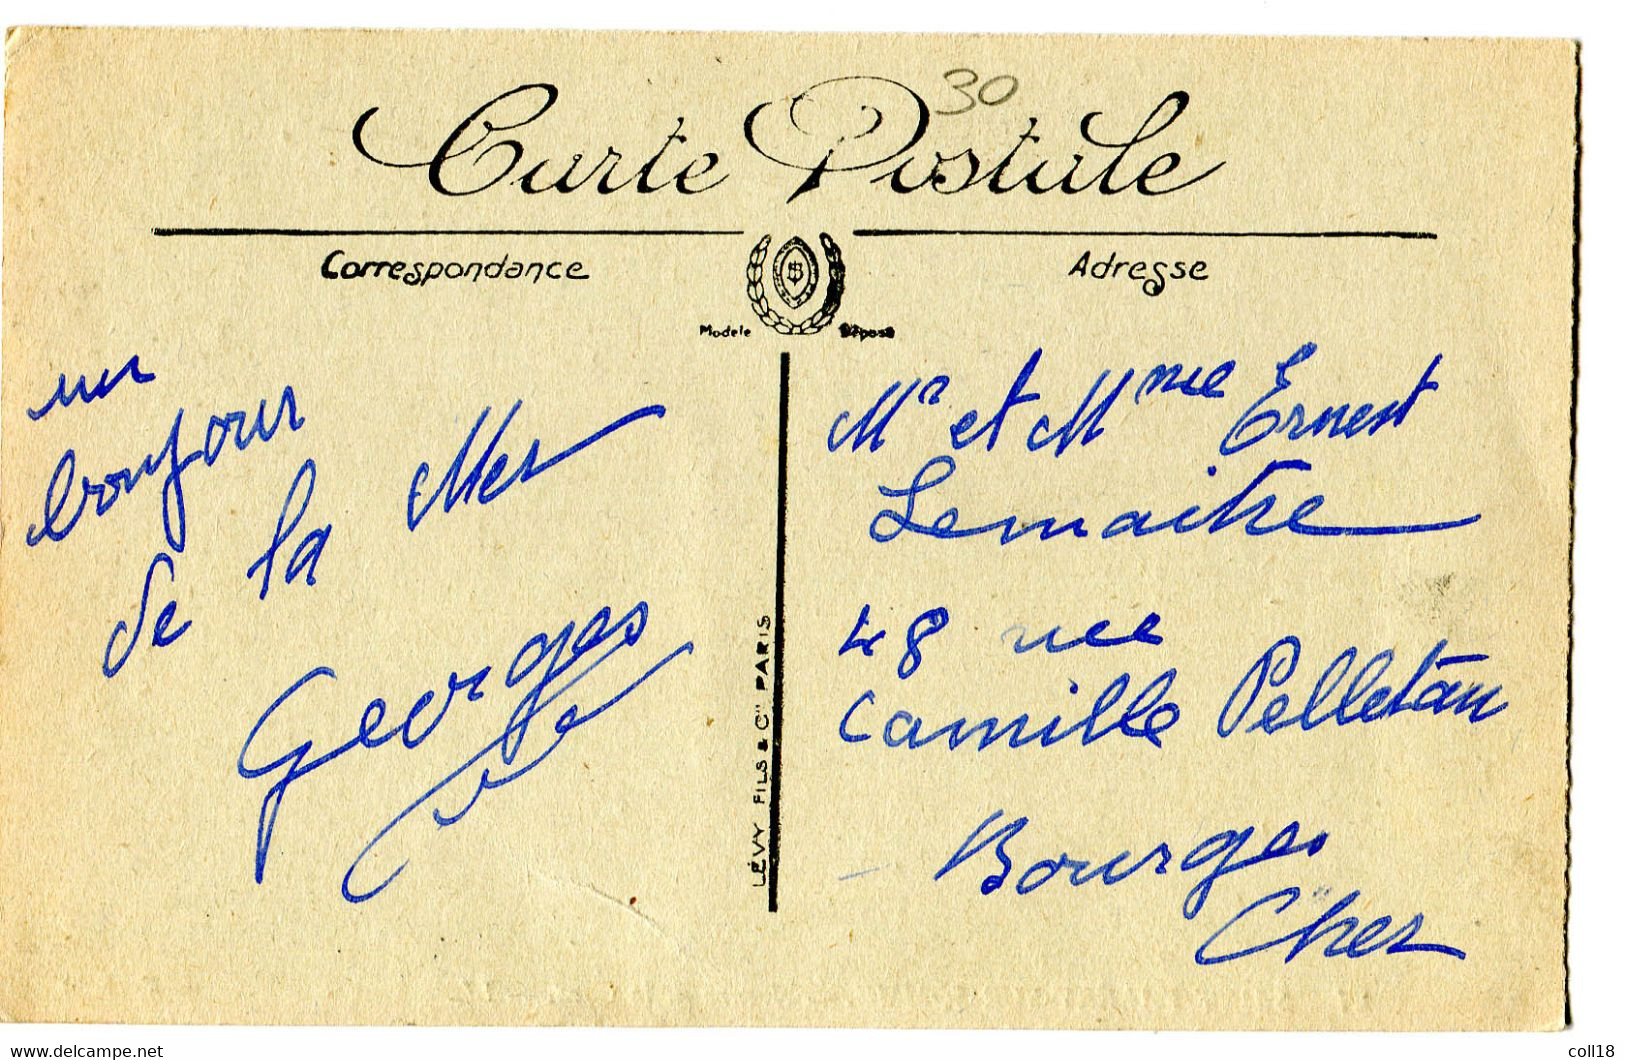 30
Carte Postale
Correspondance
Adresse
Modele Déposé
un
bonjour
de la Mer
Georges
LÉVY FILS & Cie PARIS
Mr et Mme Ernest
Lemaitre
48 rue
Camille Pelletan
Bourges
Cher
www.delcampe.net
coll18